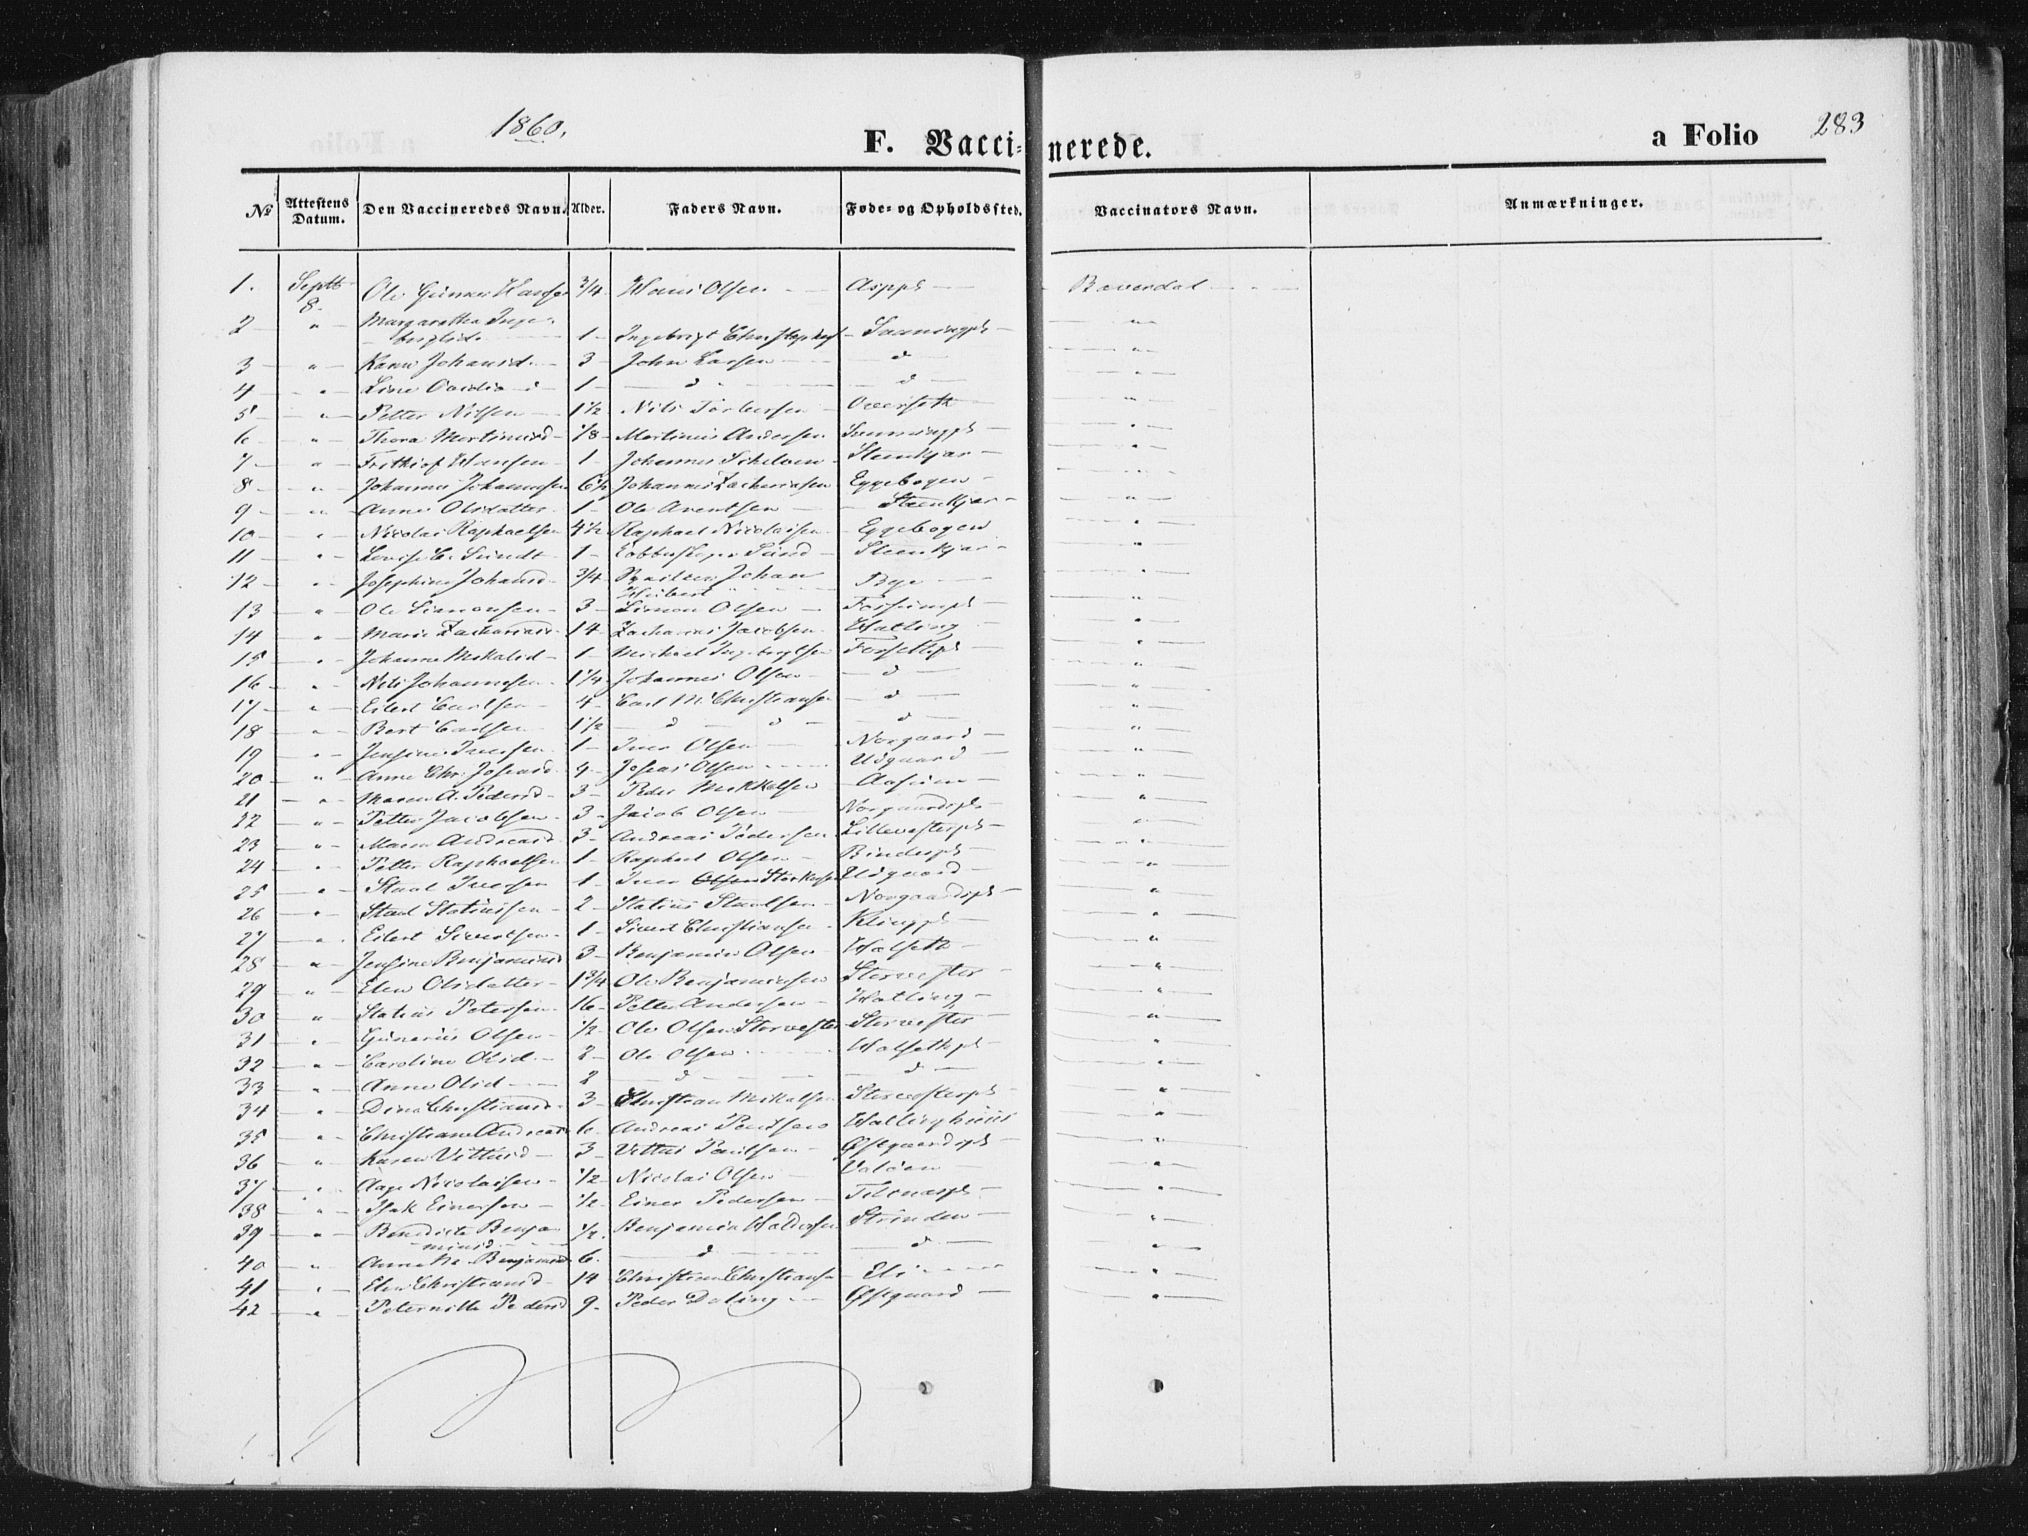 1860.
F. Vaccinerede.
a Folio 283
No Attestens Datum. Den Vaccineredes Navn. Alder. Faders Navn. Føde- og Opholdssted. Vaccinators Navn. Anmærkninger.
1. Septb 8. Ole Gunnar Hansen 3/4 Hans Olsen Asppl
2 " Margaretha Inge-
brigtsd. 1 Ingebrigt Christophers Sanningpl "
3 " Karen Johansd. 3 John Larsen d "
4 " Line d 1 d d "
5 " Petter Nilsen 1 1/2 Nils Torbersen "
6 " Thora Martinusd 1/8 Martinus Andersen Sanningpl "
7 " Frithiof Hansen 1 Johannes Steenkjær "
8 " Johannes Johannesen 6 1/2 Johannes Zachariasen Eggebogen "
9 " Anne Olsdatter 1 Ole Arentsen Steenkjær "
10 " Nicolai Raphaelsen 4 1/2 Raphael Nicolaisen Eggebogen "
11 " Lovise C. Sundt 1 Sund Steenkjær "
12 " Josephine Johansd. 3/4 Johan Bye "
13 " Ole Simonsen 3 Simon Olsen "
14 " Marie Zachariasd. 14 Zacharias Jacobsen Walling "
15 " Johanna Mikalsd 1 Michael Ingebrigtsen "
16 " Nils Johannesen 1 1/4 Johannes Olsen d "
17 " Eilert Carlsen 4 Carl M. Christiansen d "
18 " Bert Carlsen 1 1/2 d d d "
19 " Jensine Iversen 1 Iver Olsen Norgaard "
20 " Anne Chr. Joseasd 4 Joseas Olsen Udgaard "
21 " Maren A. Pedersd 3 Peder Mikkelsen "
22 " Petter Jacobsen 3 Jacob Olsen Norgaardspl "
23 " Maren Andreasd 3 Andreas Pedersen Lillevesterpl "
24 " Petter Raphaelsen 1 Raphael Olsen "
25 " Staal Iversen 1 Iver Olsen Udgaard "
26 " Staal Statiussen 2 Statius Staalsen Norgaardspl "
27 " Eilert Sivertsen 1 Sivert Christiansen Klingpl "
28 " Jensine Benjaminsd 3 Benjamin Olsen Walseth "
29 " Elen Olsdatter 1 3/4 Ole Benjaminsen Storvester "
30 " Statius Petersen 16 Petter Andersen Walling "
31 " Gunerius Olsen 1/2 Ole Olsen Storvester Storvester "
32 " Caroline Olsd. Ole Olsen Walsethpl "
33 " Anne Olsd 8 d d "
34 " Dina Christiansd. 3 Christian Mikalsen Storvesterpl "
35 " Christiane Andreasd 6 Andreas Paulsen Wallinghuus "
36 " Karen Vittusd 3 Vittus Paulsen Østgaardspl "
37 " Aage Nicolaisen 1/2 Nicolai Olsen "
38 " Isak Einersen 1/2 Einer Pedersen "
39 " Benedicte Benja-
minsd. 1/2. Benjamin Strinden "
40 " Benjaminsd 6. d d "
41 " Elen Christiansd 14 Christian Christiansen "
42 " Peternille Pedersd 9. Peder Østgaard "